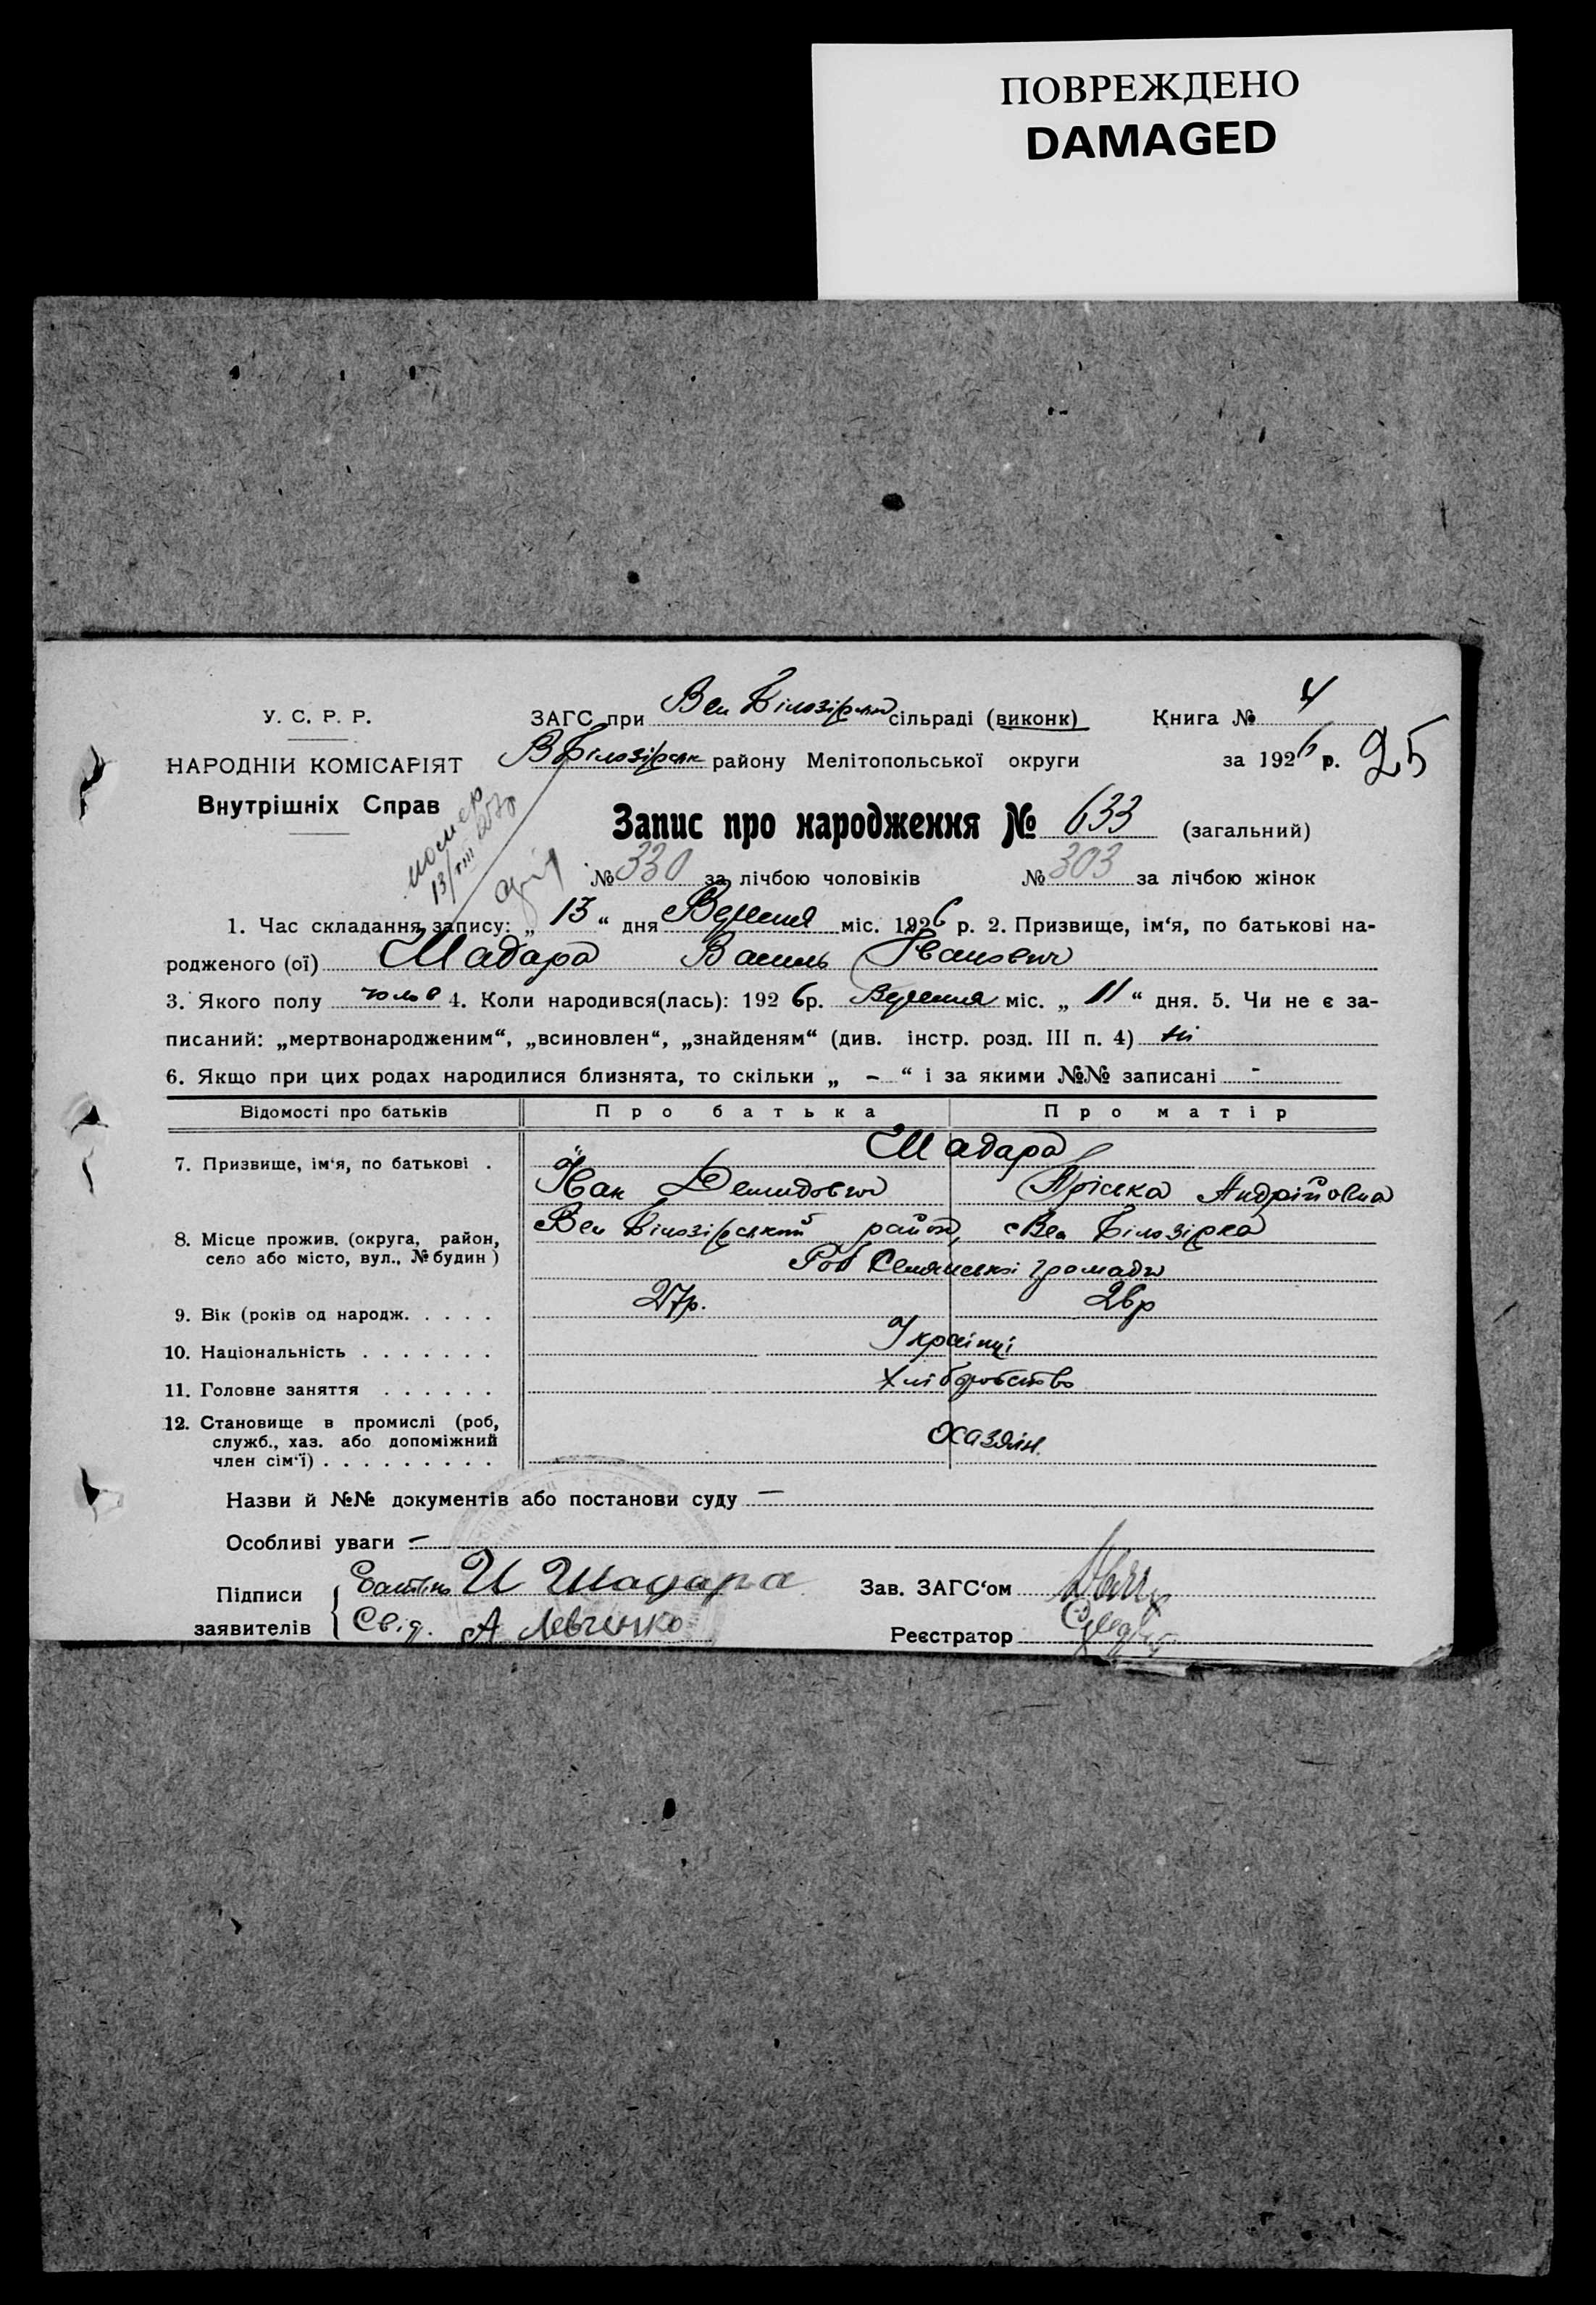 ПОВРЕЖДЕНО
DAMAGED
У. С. Р. Р.
НАРОДНІЙ КОМІСАРІЯТ
Внутрішніх Справ
ЗАГС при Вел Білозірськ сільраді (виконк)
Книга № 4
В Білозірськ району Мелітопольської округи
за 1926 р. 25
помер
13/VIII
Запис про народження № 633 (загальний)
№ 330 за лічбою чоловіків № 303 за лічбою жінок
1. Час складання запису: „ 13 “ дня Вересня міс. 1926 р. 2. Призвище, ім‘я, по батькові на-
родженого (ої) Шадара Василь Іванович
3. Якого полу чолов 4. Коли народився(лась): 1926р. Вересня міс. „ 11 “ дня. 5. Чи не є за-
писаний: „мертвонародженим“, „всиновлен“, „знайденям“ (див. інстр. розд. III п. 4) ні
6. Якщо при цих родах народилися близнята, то скільки „ - “ і за якими №№ записані -
Відомості про батьків Про батька Про матір
7. Призвище, ім‘я, по батькові . Шадара
Іван Демидович Пріська Андрійовна
8. Місце прожив. (округа, район, село або місто, вул., № будин) Вел Білозірський район, с Вел Білозірка
громади
9. Вік (років од народж. . . . . 27р. 26р
10. Національність . . . . . . . Українці
11. Головне заняття . . . . . . Хліборобство
12. Становище в промислі (роб, служб., хаз. або допоміжний член сім‘ї) . . . . . . . . .
Назви й №№ документів або постанови суду —
Особливі уваги –
Підписи заявителів { Батько И Шадара
Свід. А Левченко
Зав. ЗАГС‘ом
Реєстратор